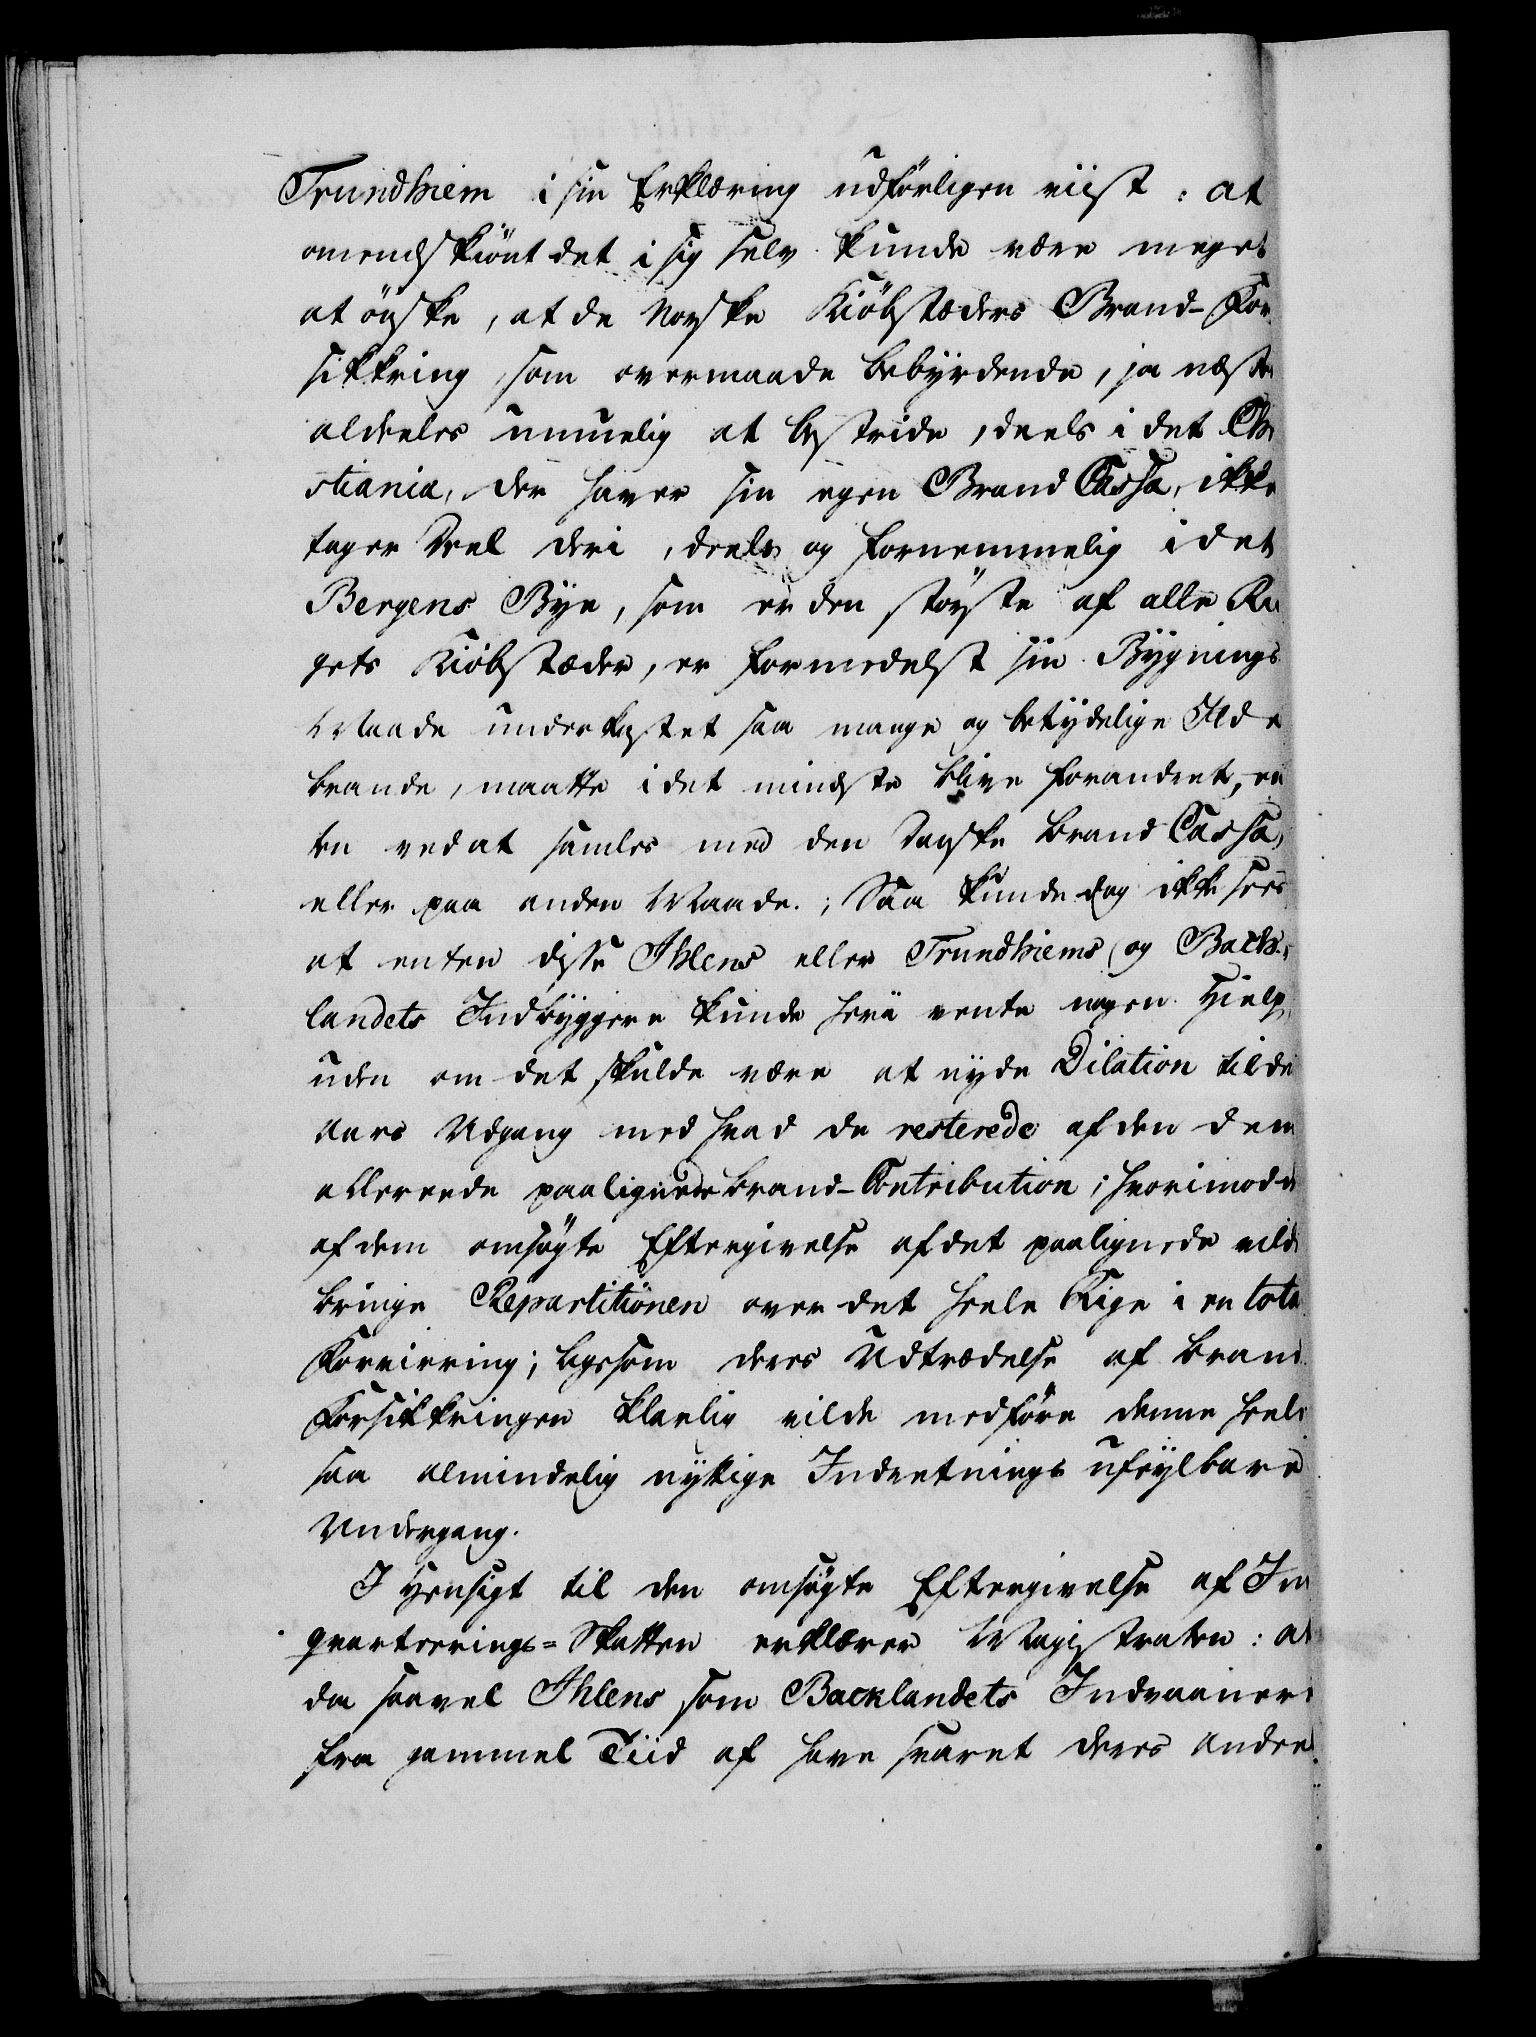 Trundhiem i sin Erklæring udförligen viist: at
omendskiönt det i sig selv kunde være meget
at önske, at de Norske Kiöbstæders Brand-For
sikkring, som overmaade bebyrdende, ja næsten
aldeeles umuelig at bestride, deels i det Chri
stiania, der haver sin egen Brand Cassa, ikke
tager Deel deri, deels og fornemmelig i det
Bergens Bye, som er den störste af alle Ri
gets Kiöbstæder, er formedelst sin Bygnings
Maade underkastet saa mange og betydelige Ilde
brande, maatte i det mindste blive forandret, en
ten ved at samles med den Danske Brand Cassa,
eller paa anden Maade.; Saa kunde dog ikke sees
at enten disse Ihlens eller Trundhiems og Back-
landets Indbyggere kunde heri vente nogen Hielp,
uden om det skulde være at nyde Dilation til de
Aars Udgang med hvad de resterede af den dem
allereede paalignede Brand-Contribution; hvorimod
af dem omsögte Eftergivelse af det paalignede vilde
bringe Repartitionen over det heele Rige i en total
Forvirring; ligesom deres Udtrædelse af Brand
Forsikkringen klarlig vilde medföre denne heele
saa almindelig nyttige Indretnings ufeylbare
Undergang.
I Hensigt til den omsögte Eftergivelse af In
qvarteerings-Skatten erklærer Magistraten: at
da saavel Ihlens som Backlandets Indvaanere
fra gammel Tiid af have svaret deres Andeel